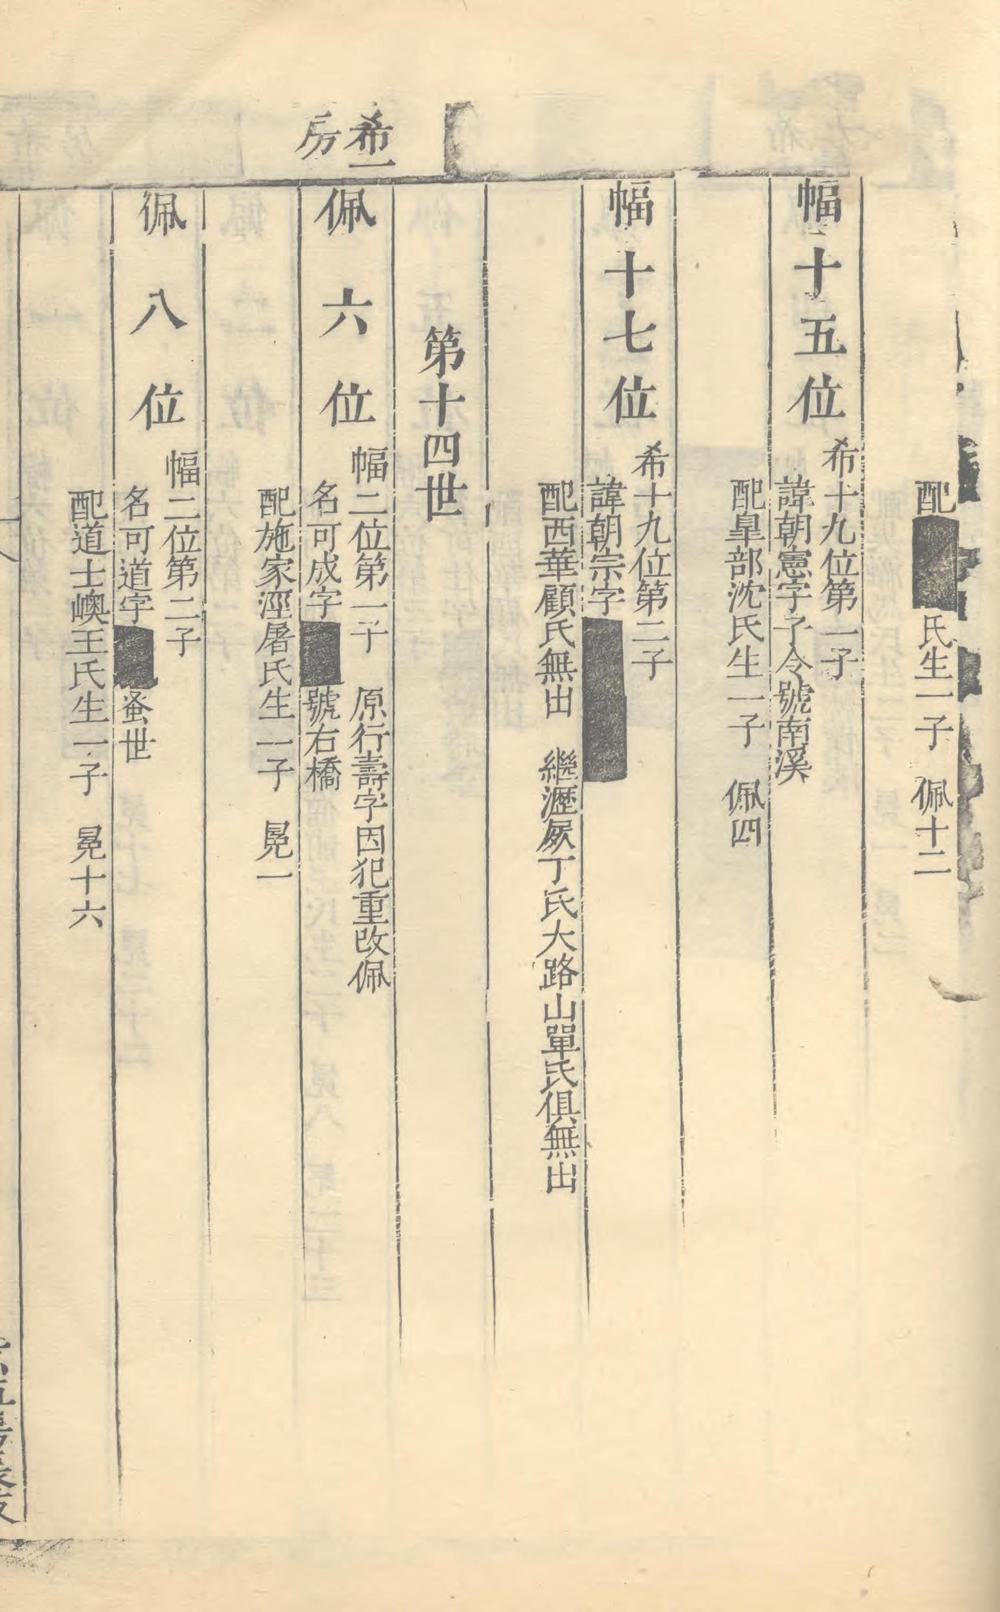 配■氏生一子 佩十二
幅十五位
希十九位第一子
諱朝憲字子令號南溪
配皐部沈氏生一子 佩四
幅十七位
希十九位第二子
諱朝宗字■
配西華顧氏無出 繼瀝㞘丁氏大路山單氏俱無出
第十四世
希一
房
佩六位
幅二位第一子 原行壽字因犯重改佩
名可成字■號右橋
配施家涇屠氏生一子 冕一
佩八位
幅二位第二子
名可道字■蚤世
配道士㠗王氏生一子 冕十六